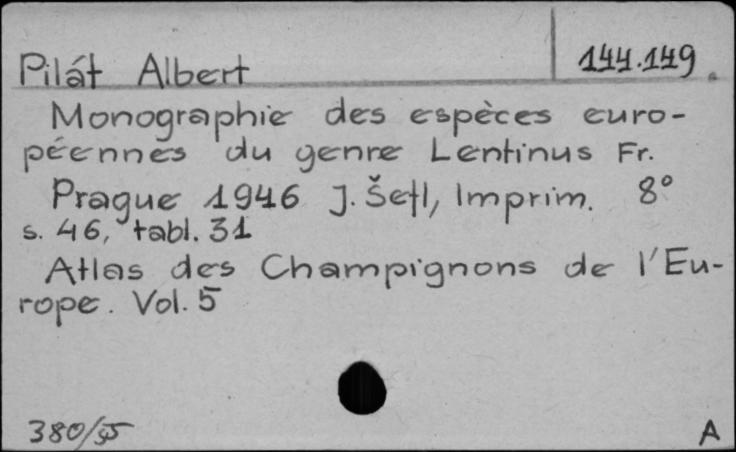 144.149
Pilát Albert
Monographie des espèces euro-
péennes du genre Lentinus Fr.
Prague 1946 J. Šefl, Imprim. 8°
s. 46, tabl. 31
Atlas des Champignons de l'Eu-
rope. Vol. 5
380/55
A